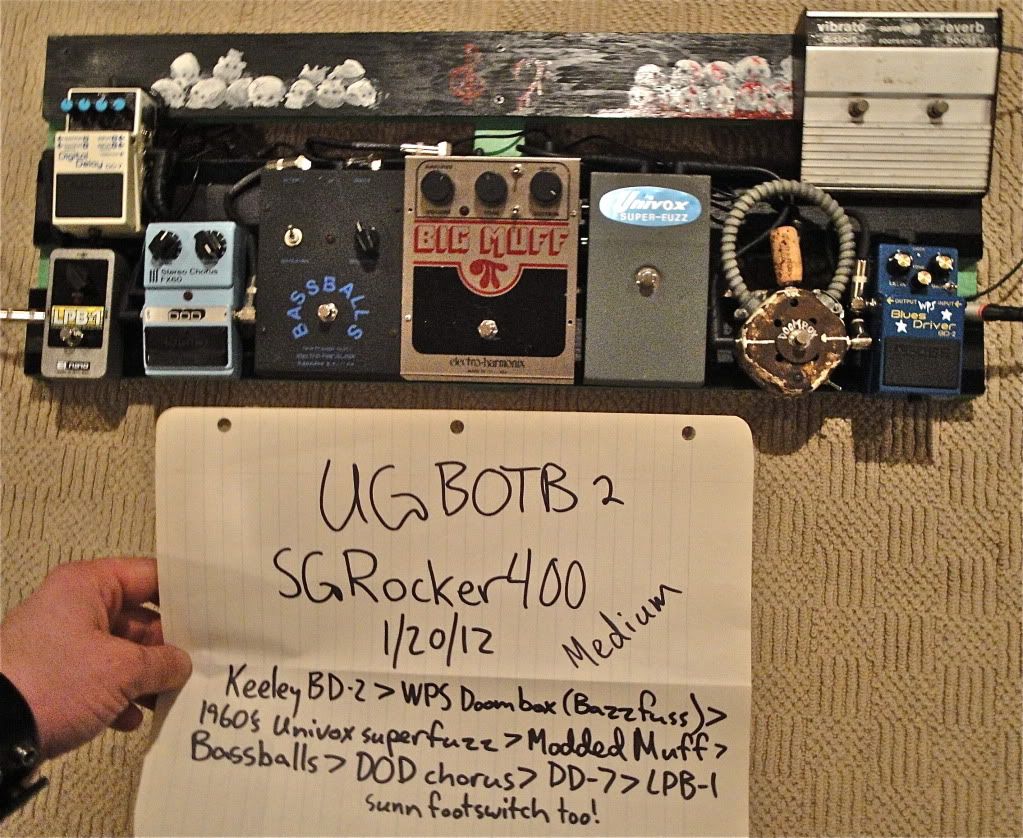 vibrato reverb
Distort FOOTSWITCH Boost
Digital Delay DD-7
Univox
SUPER-FUZZ
BIG MUFF
electro-harmonix
Stereo Chorus
FX60
DOD
BASSBALLS
LPB-1
E H nano
DOOMBOX
OUTPUT WPS INPUT
Blues Driver
BD-2
UG BOTB 2
SGRocker400
1/20/12
Medium
Keeley BD-2 > WPS Doombox (Bazzfuss) >
1960s Univox superfuzz > Modded Muff >
Bassballs > DOD chorus > DD-7 > LPB-1
sunn footswitch too!